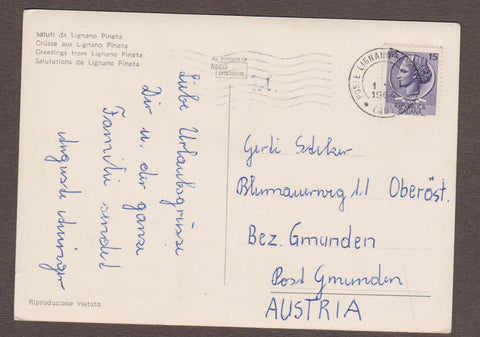 Saluti da Lignano Pineta
Grüsse aus Lignano Pineta
Greetings from Lignano Pineta
Salutations de Lignano Pineta
Kodak
POSTE LIGNANO
1964
15
Liebe Urlaubsgrüsse
Dir u. der ganze
Familie sendet
Auguste
Gerti
Blumauerweg 11 Oberöst.
Bez. Gmunden
Post Gmunden
AUSTRIA
Riproduzione vietata